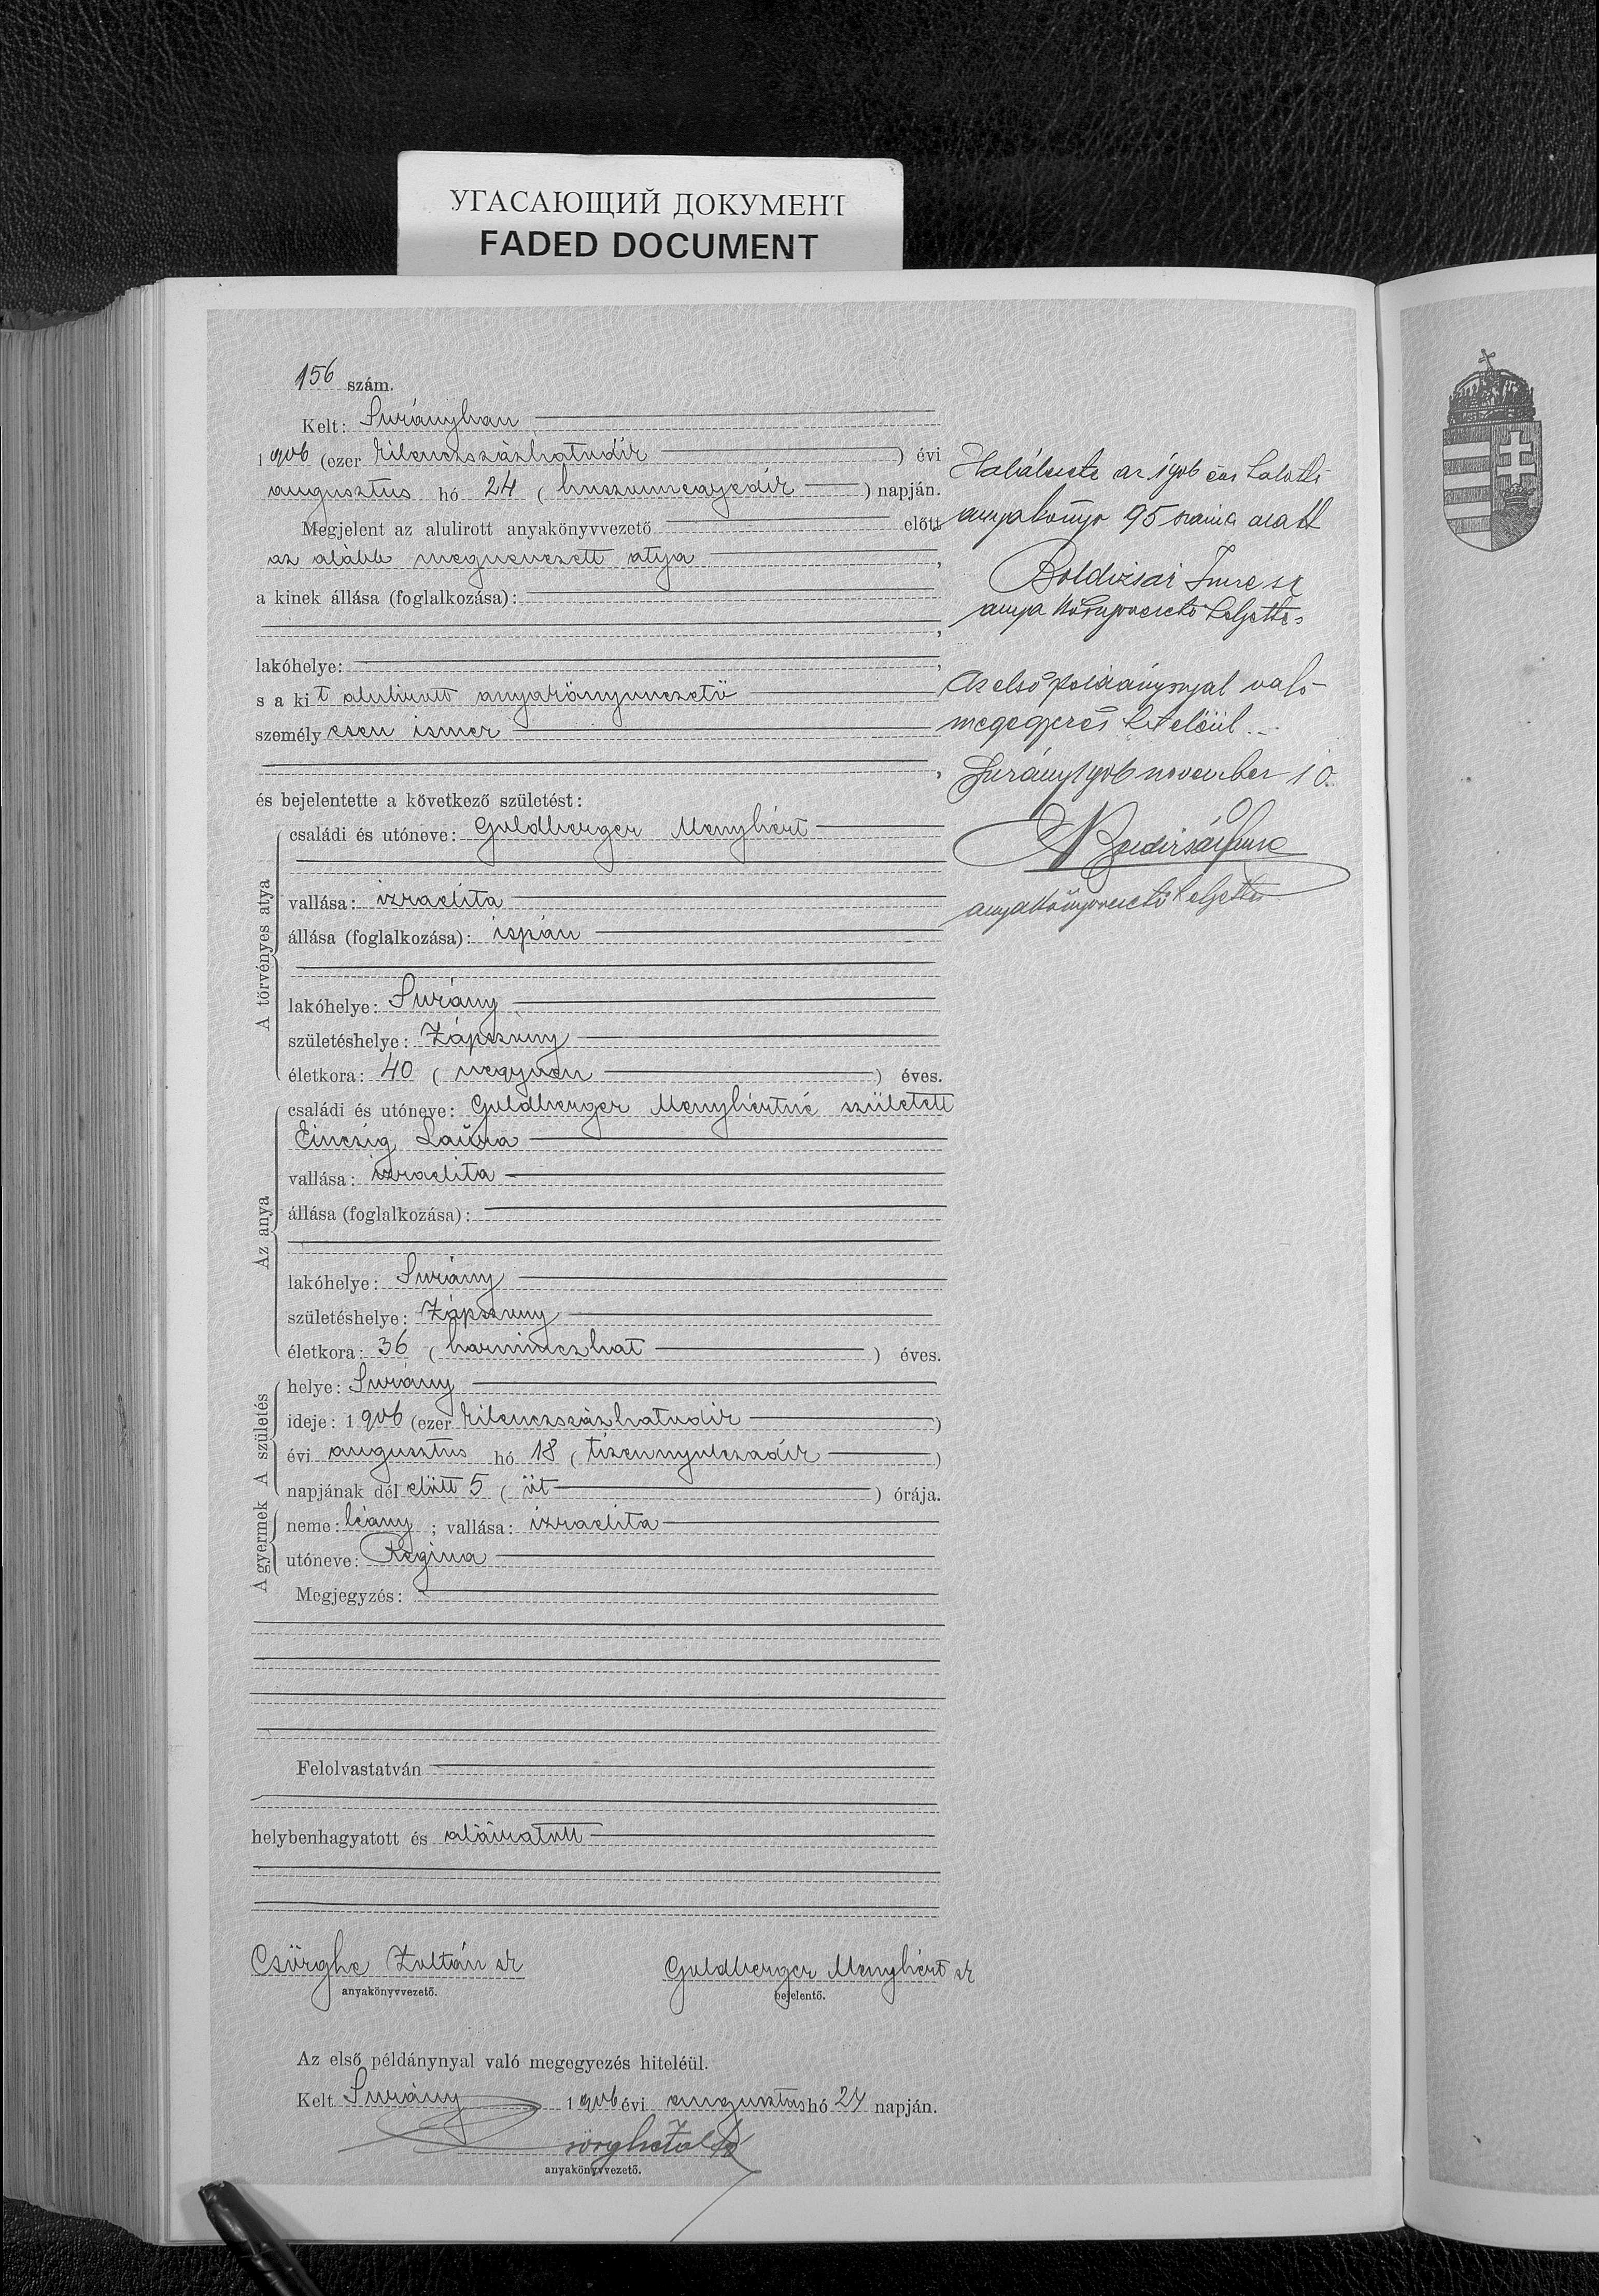 УГАСАЮЩИЙ ДОКУМЕНТ
FADED DOCUMENT
156 szám.
Kelt: Surányban
1906 (ezer kilenczszázhatodik) évi
augusztus hó 24 (huszonnegyedik) napján.
Megjelent az alulirott anyakönyvvezető előtt
az alább megnevezett atya,
a kinek állása (foglalkozása):
,
lakóhelye: ,
s a kit alulirott anyakönyvvezető
személyesen ismer
,
és bejelentette a következő születést:
A törvényes atya
családi és utóneve: Goldberger Menyhért
vallása: izraelita
állása (foglalkozása): ispán
lakóhelye: Surány
születéshelye: Zápszony
életkora: 40 (negyven) éves.
Az anya
családi és utóneve: Goldberger Menyhértné született
Einczig Laura
vallása: izraelita
állása (foglalkozása):
lakóhelye: Surány
születéshelye: Zápszony
életkora: 36 (harminczhat) éves.
A születés
helye: Surány
ideje: 1906 (ezer kilenczszázhatodik)
évi augusztus hó 18 (tizennyolczadik)
napjának dél előtt 5 (öt) órája.
A gyermek
neme: leány; vallása: izraelita
utóneve: Regina
Megjegyzés:
Felolvastatván
helybenhagyatott és aláiratott
Csörghe Zoltán sk
anyakönyvvezető.
Goldberger Menyhért sk
bejelentő.
Az első példánynyal való megegyezés hiteléül.
Kelt Surány 1906 évi augusztus hó 24 napján.
anyakönyvvezető.
az 1906 évi halotti
anyakönyv 95 száma alatt
Boldizsár Imre sk
anyakönyvvezető helyettes
Az első példánynyal való
megegyezés hiteléül.
Surány 1906 november 10.
Boldizsár Imre
anyakönyvvezető helyettes